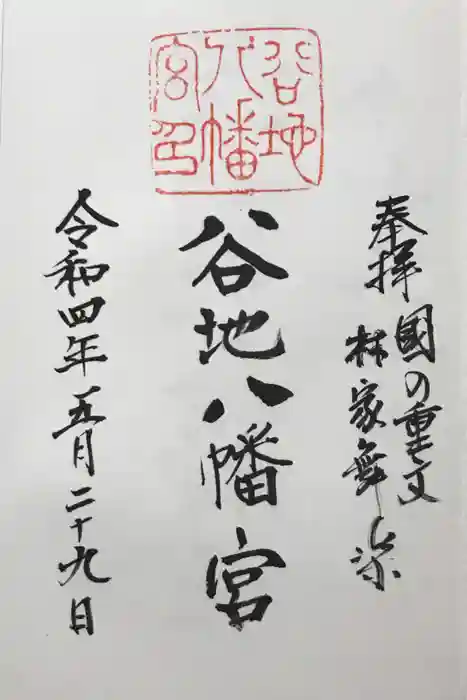 奉拝
國の重文
林家舞楽
谷地八幡宮
谷地
八幡
宮印
令和四年五月二十九日